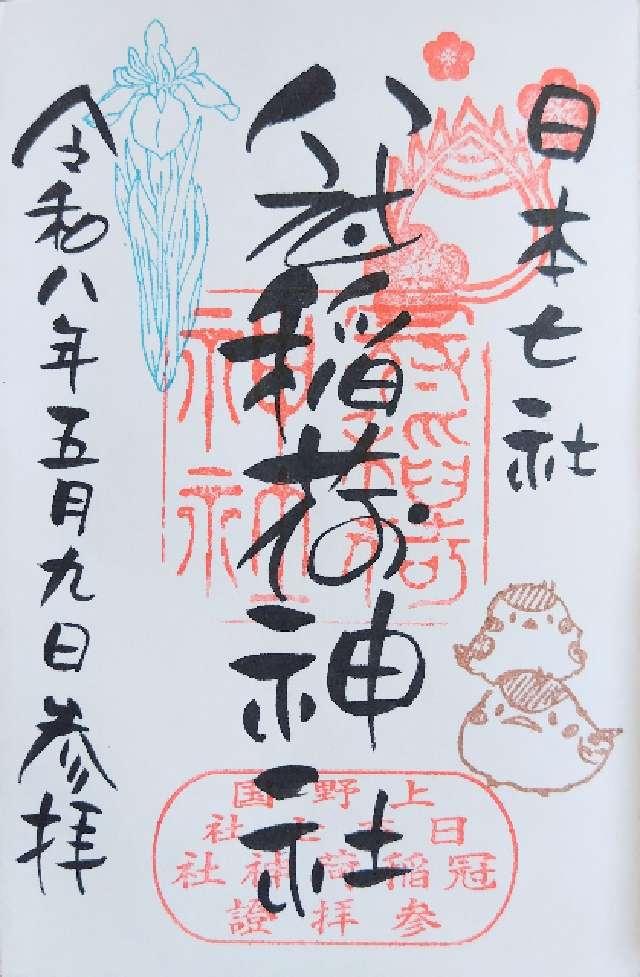 日本七社
冠稲荷神社
令和八年五月九日参拝
上野国
日本七社
冠稲荷神社
参拝證